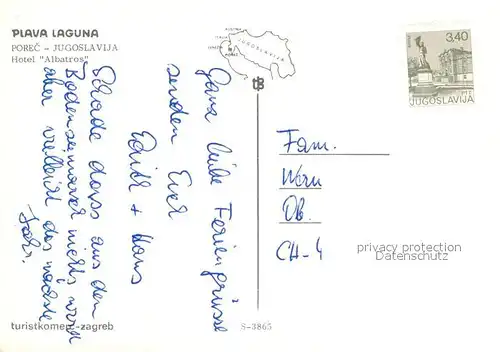 PLAVA LAGUNA
POREČ – JUGOSLAVIJA
Hotel "Albatros"
JUGOSLAVIJA
POREČ
3,40
JUGOSLAVIJA
Ganz liebe Feriengrüsse
senden Euch
Edith + Hans
Schade dass aus dem
Bodensee nichts wurde
aber vielleicht das nächste
Jahr.
Fam.
Wern
Ob.
CH-4
privacy protection
Datenschutz
turistkomerc-zagreb
S-3865